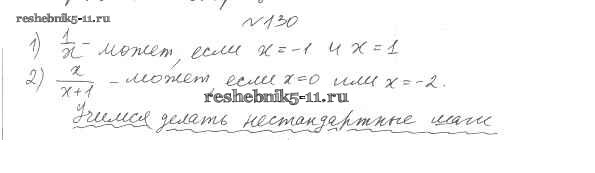 reshebnik5-11.ru
№130
1) 1/x - может, если x=-1 и x=1
2) x/(x+1) - может, если x=0 или x=-2.
reshebnik5-11.ru
Учимся делать нестандартные шаги